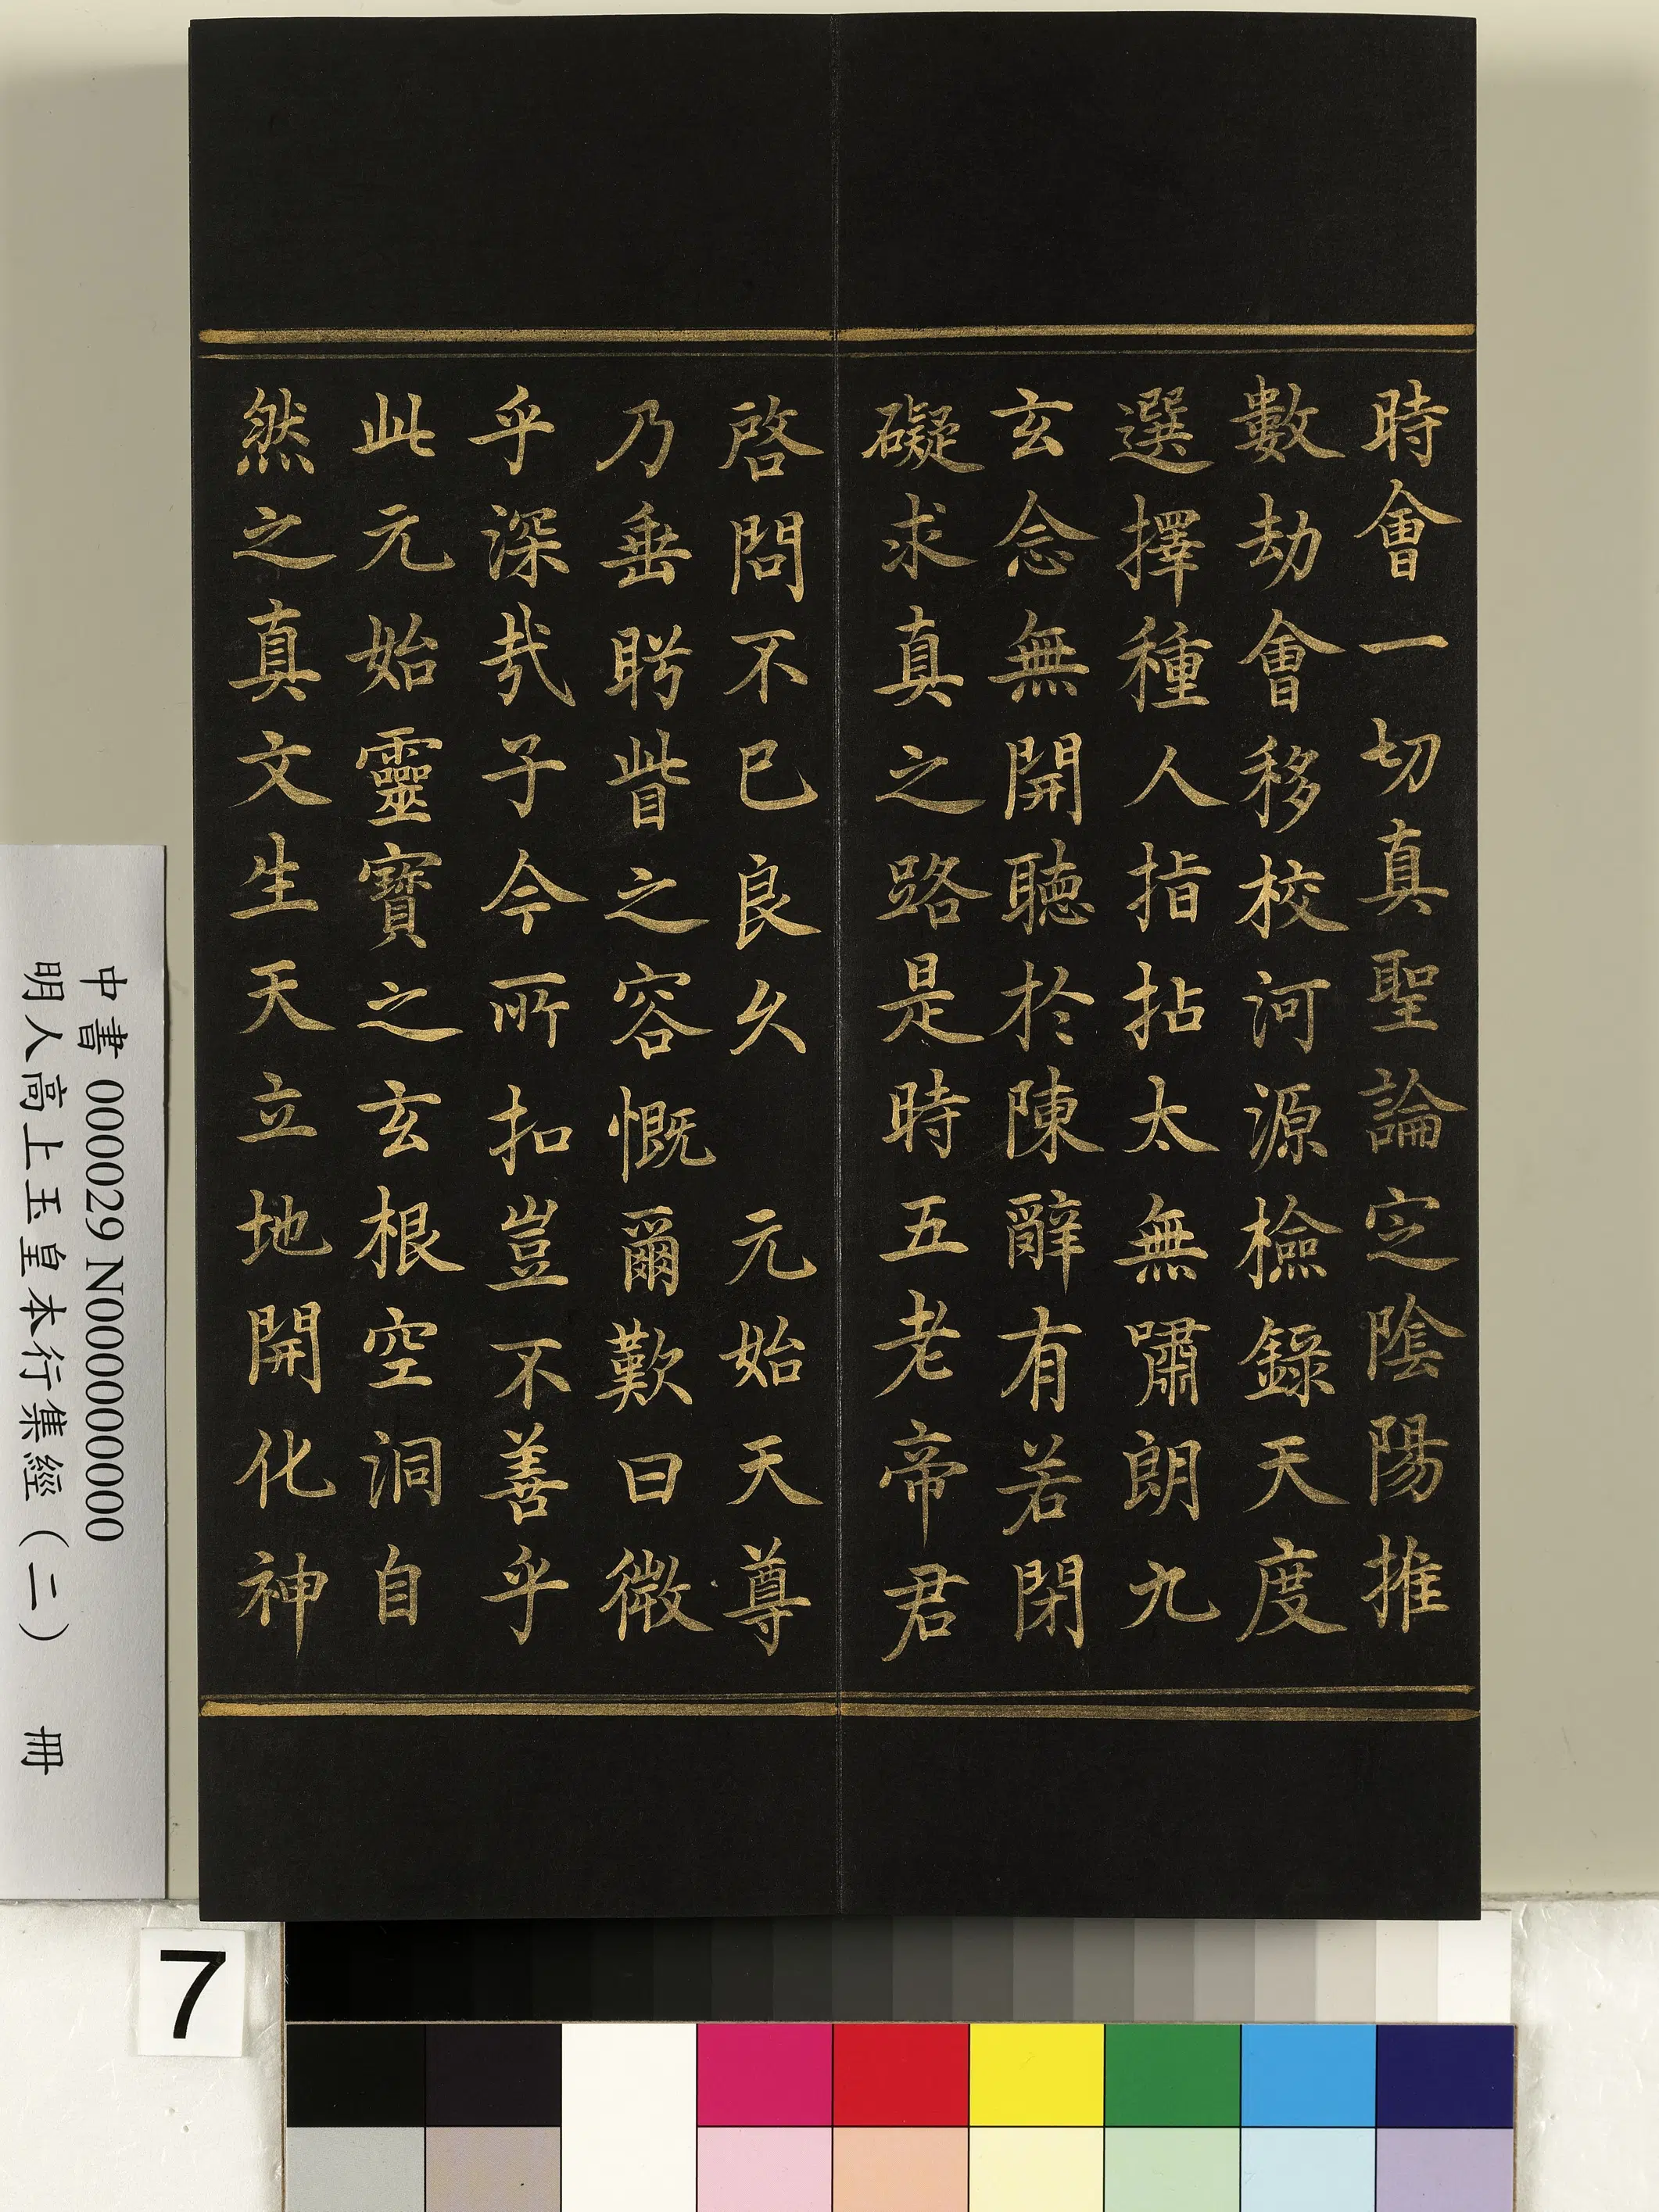 時會一切真聖論定陰陽推
數劫會移校河源檢錄天度
選擇種人指拈太無嘯朗九
玄念無開聽於陳辭有若閉
礙求真之路是時五老帝君
啓問不已良久　元始天尊
乃垂眄眥之容慨爾歎曰微
乎深哉子今所扣豈不善乎
此元始靈寶之玄根空洞自
然之真文生天立地開化神
中書 000029 N000000000
明人高上玉皇本行集經（二）　冊
7